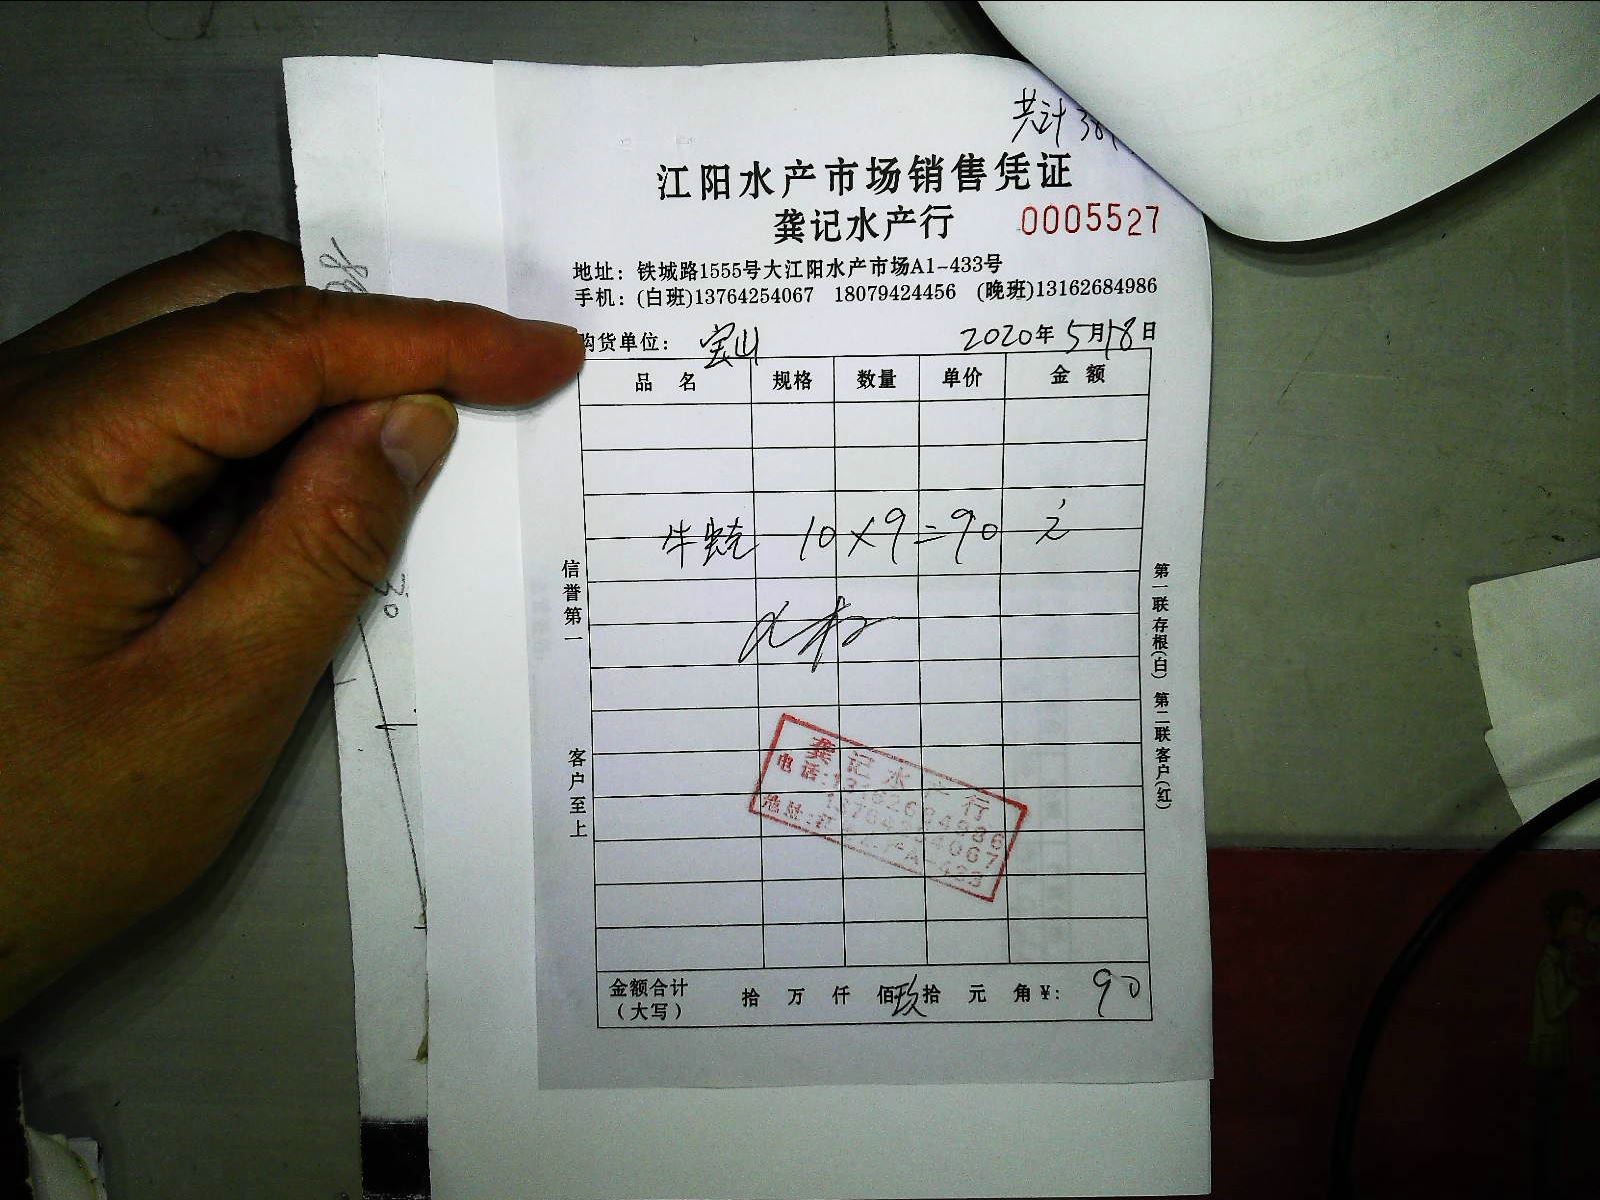 共计
江阳水产市场销售凭证
龚记水产行 0005527
地址：铁城路1555号大江阳水产市场A1-433号
手机：(白班)13764254067 18079424456 (晚班)13162684986
购货单位：宝山 2020年5月18日
品名 规格 数量 单价 金额
牛蛙 10×9=90 元
信誉第一
客户至上
第一联存根(白) 第二联客户(红)
龚记水产行
电话:13162684986
13764254067
地址:
金额合计（大写） 拾 万 仟 佰 玖拾 元 角 ¥: 90